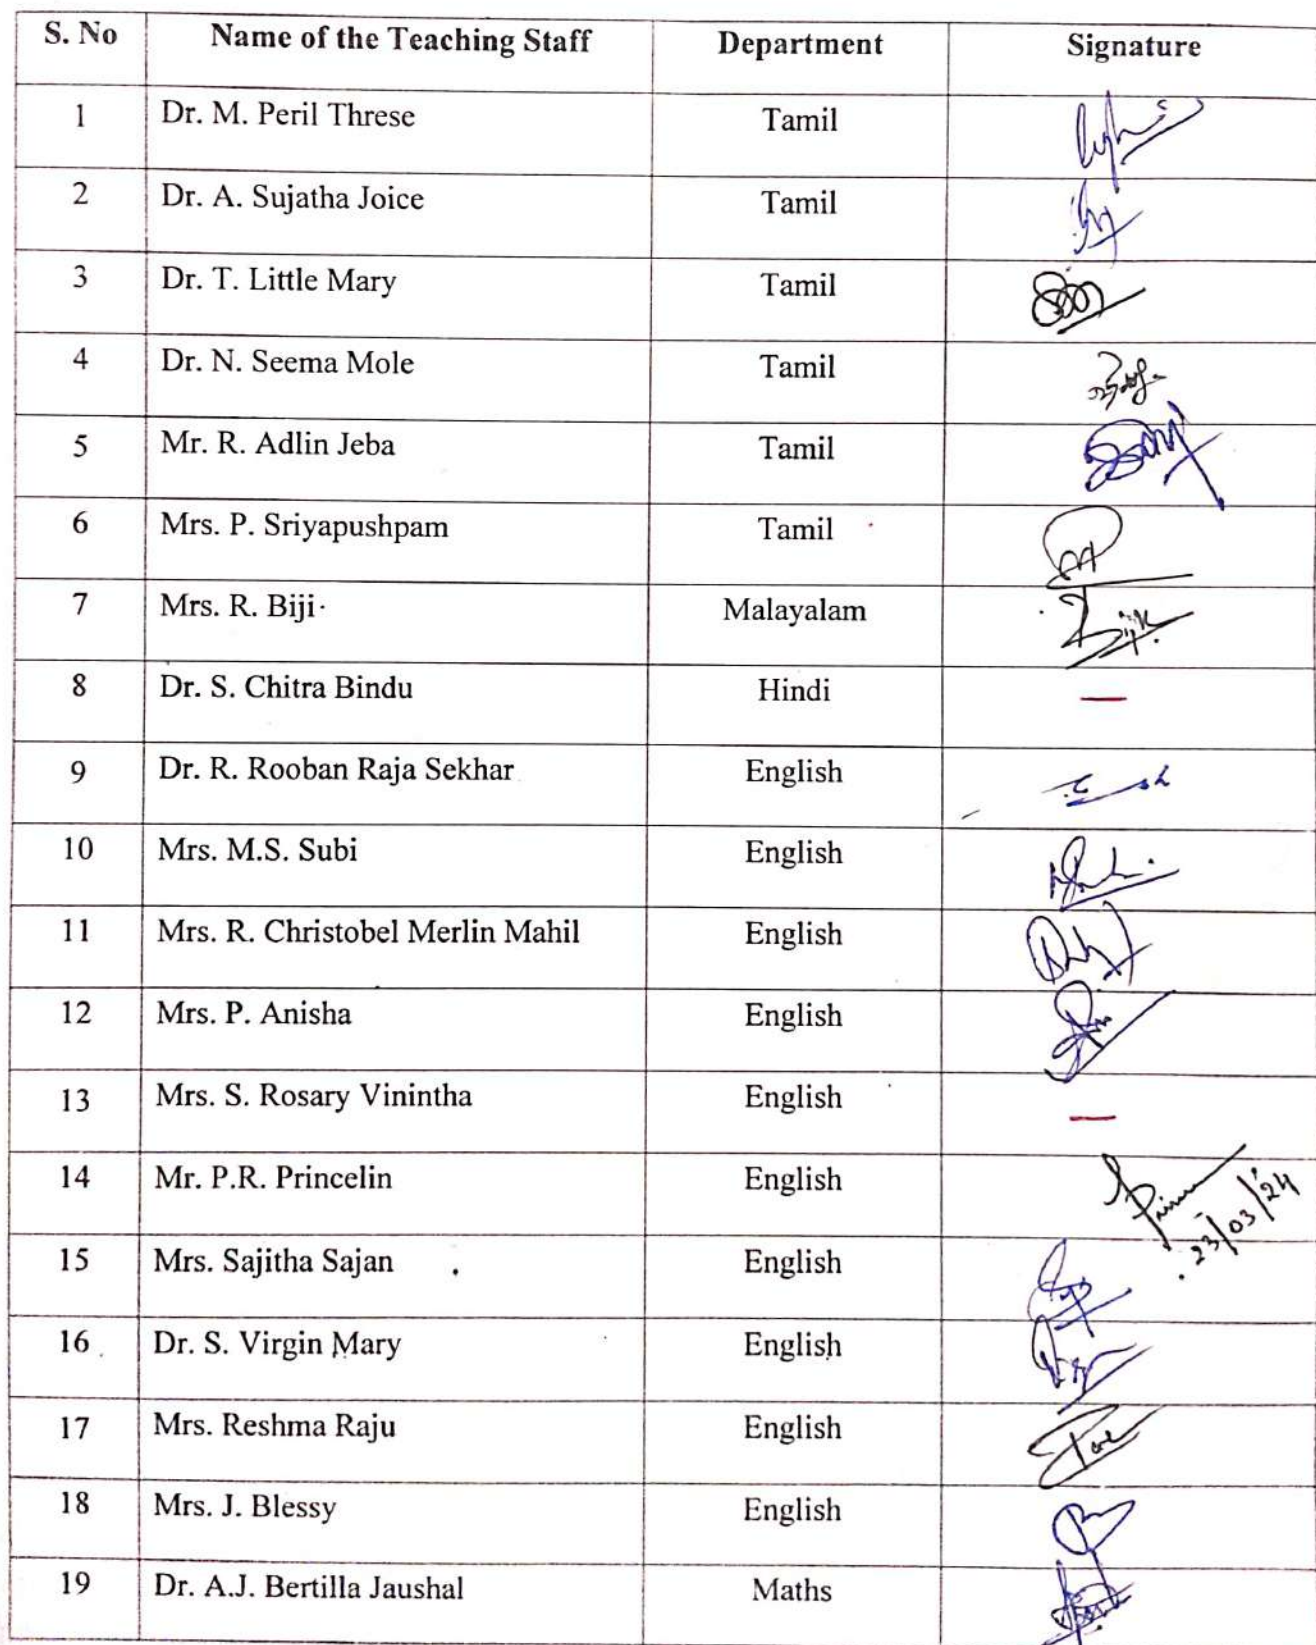 S. No Name of the Teaching Staff Department Signature
1 Dr. M. Peril Threse Tamil
2 Dr. A. Sujatha Joice Tamil
3 Dr. T. Little Mary Tamil
4 Dr. N. Seema Mole Tamil
5 Mr. R. Adlin Jeba Tamil
6 Mrs. P. Sriyapushpam Tamil
7 Mrs. R. Biji Malayalam
8 Dr. S. Chitra Bindu Hindi —
9 Dr. R. Rooban Raja Sekhar English
10 Mrs. M.S. Subi English
11 Mrs. R. Christobel Merlin Mahil English
12 Mrs. P. Anisha English
13 Mrs. S. Rosary Vinintha English —
14 Mr. P.R. Princelin English
23/03/24
15 Mrs. Sajitha Sajan English
16 Dr. S. Virgin Mary English
17 Mrs. Reshma Raju English
18 Mrs. J. Blessy English
19 Dr. A.J. Bertilla Jaushal Maths